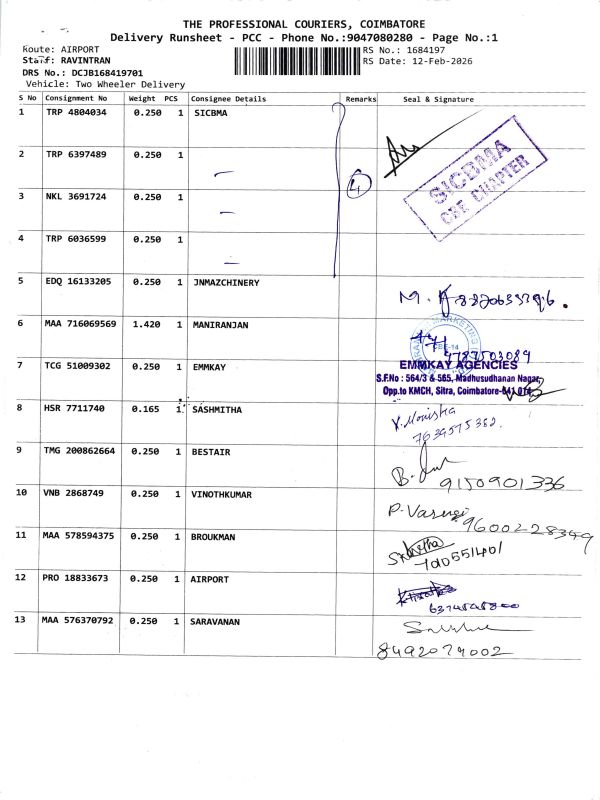 THE PROFESSIONAL COURIERS, COIMBATORE
Delivery Runsheet - PCC - Phone No.:9047080280 - Page No.:1
Route: AIRPORT
RS No.: 1684197
Staff: RAVINTRAN
RS Date: 12-Feb-2026
DRS No.: DCJB168419701
Vehicle: Two Wheeler Delivery
S No Consignment No Weight PCS Consignee Details Remarks Seal & Signature
1 TRP 4804034 0.250 1 SICBMA
SICBMA
CBE CHAPTER
2 TRP 6397489 0.250 1 —
4
3 NKL 3691724 0.250 1 —
4 TRP 6036599 0.250 1 —
5 EDQ 16133205 0.250 1 JNMAZCHINERY
6 MAA 716069569 1.420 1 MANIRANJAN
MARKETING
CBE-14
9787503089
7 TCG 51009302 0.250 1 EMMKAY
EMMKAY AGENCIES
S.F.No : 564/3 & 565, Madhusudhanan Nagar
Opp.to KMCH, Sitra, Coimbatore-641 014
8 HSR 7711740 0.165 1 SASHMITHA
V. Monisha
7639575382.
9 TMG 200862664 0.250 1 BESTAIR
9150901336
10 VNB 2868749 0.250 1 VINOTHKUMAR
9600228349
11 MAA 578594375 0.250 1 BROUKMAN
12 PRO 18833673 0.250 1 AIRPORT
13 MAA 576370792 0.250 1 SARAVANAN
8492079002